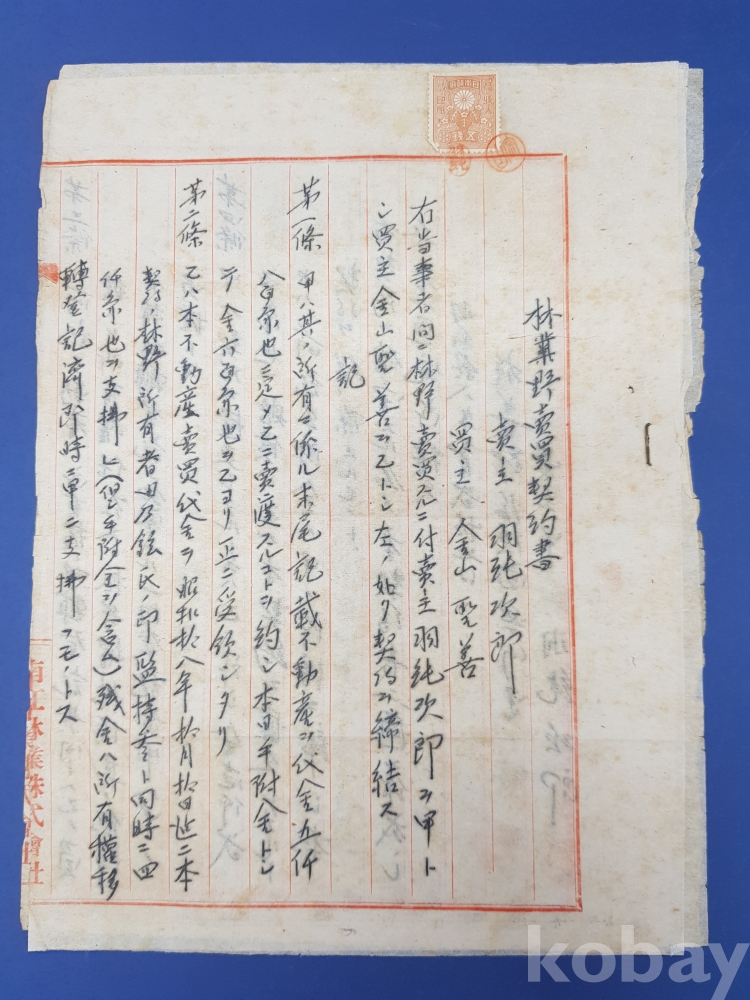 林野賣買契約書
賣主 羽純次郎
買主 金山聖善
右当事者間ニ林野賣買スルニ付賣主羽純次郎ヲ甲ト
シ買主金山聖善ヲ乙トシ左ノ如ク契約ヲ締結ス
記
第一條 甲ハ其ノ所有ニ係ル末尾記載不動産ヲ代金五仟
円也ト定メ乙ニ賣渡スルコトヲ約シ本日手附金トシ
テ金六百円也ヲ乙ヨリ正ニ受領シタリ
第二條 乙ハ本不動産賣買代金ヲ昭和拾八年拾月拾四日迄ニ本
契約林野所有者ノ印監持参ト同時ニ四
仟円也ヲ支拂ヒ(但手附金ヲ含ム)残金ハ所有權移
轉登記濟即時ニ甲ニ支拂フモノトス
林業株式會社
kobay